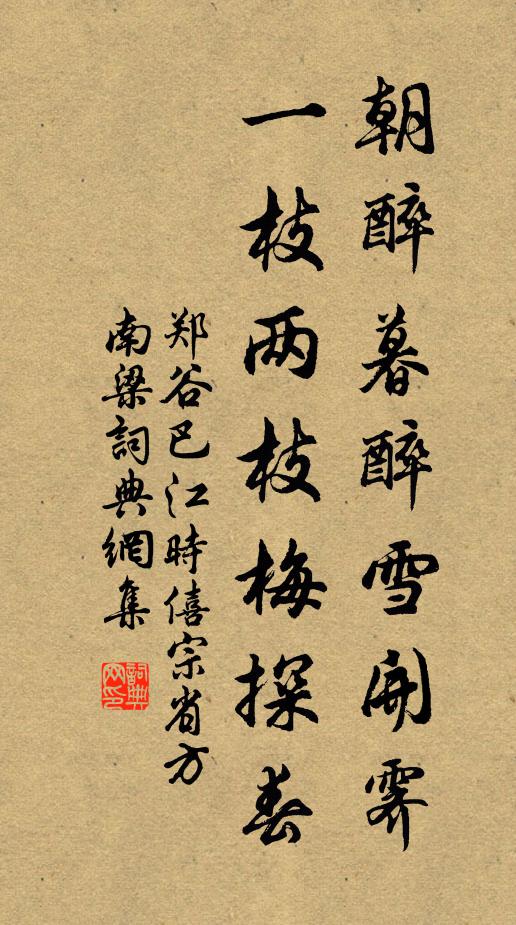 朝醉暮醉雪開霽
一枝两枝梅探春
郑谷巴江時僖宗省方
南梁詞典網集
詞典網印